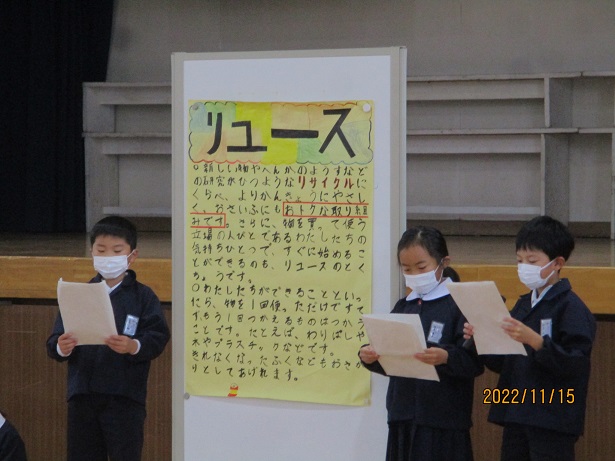 リユース
○新しい物やへんかのようすなど
の研究がひつようなリサイクルに
くらべ、よりかんきょうにやさし
く、おさいふにもおトクな取り組
みです。さらに、物を買って使う
立場の人びとであるわたしたちの
気持ちひとつで、すぐに始めるこ
とができるのも、リユースのとく
ちょうです。
○わたしたちができることといっ
たら、物を1回使っただけですて
ず、もう1回つかえるものはつかう
ことです。たとえば、わりばしや
本やプラスチックなどです。
きれなくなったふくなどもおさが
りとしてあげれます。
2022/11/15